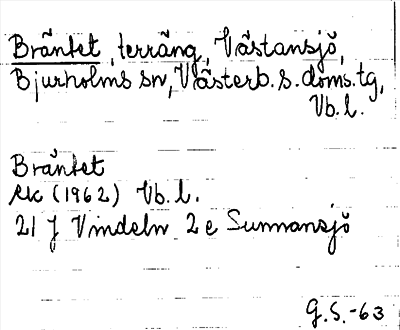 Bräntet, terräng, Västansjö,
Bjurholms sn, Västerb. s. doms. tg,
Vb. l.
Bräntet
ek (1962) Vb. l.
21 J Vindeln 2 e Sunnansjö
G.S.-63